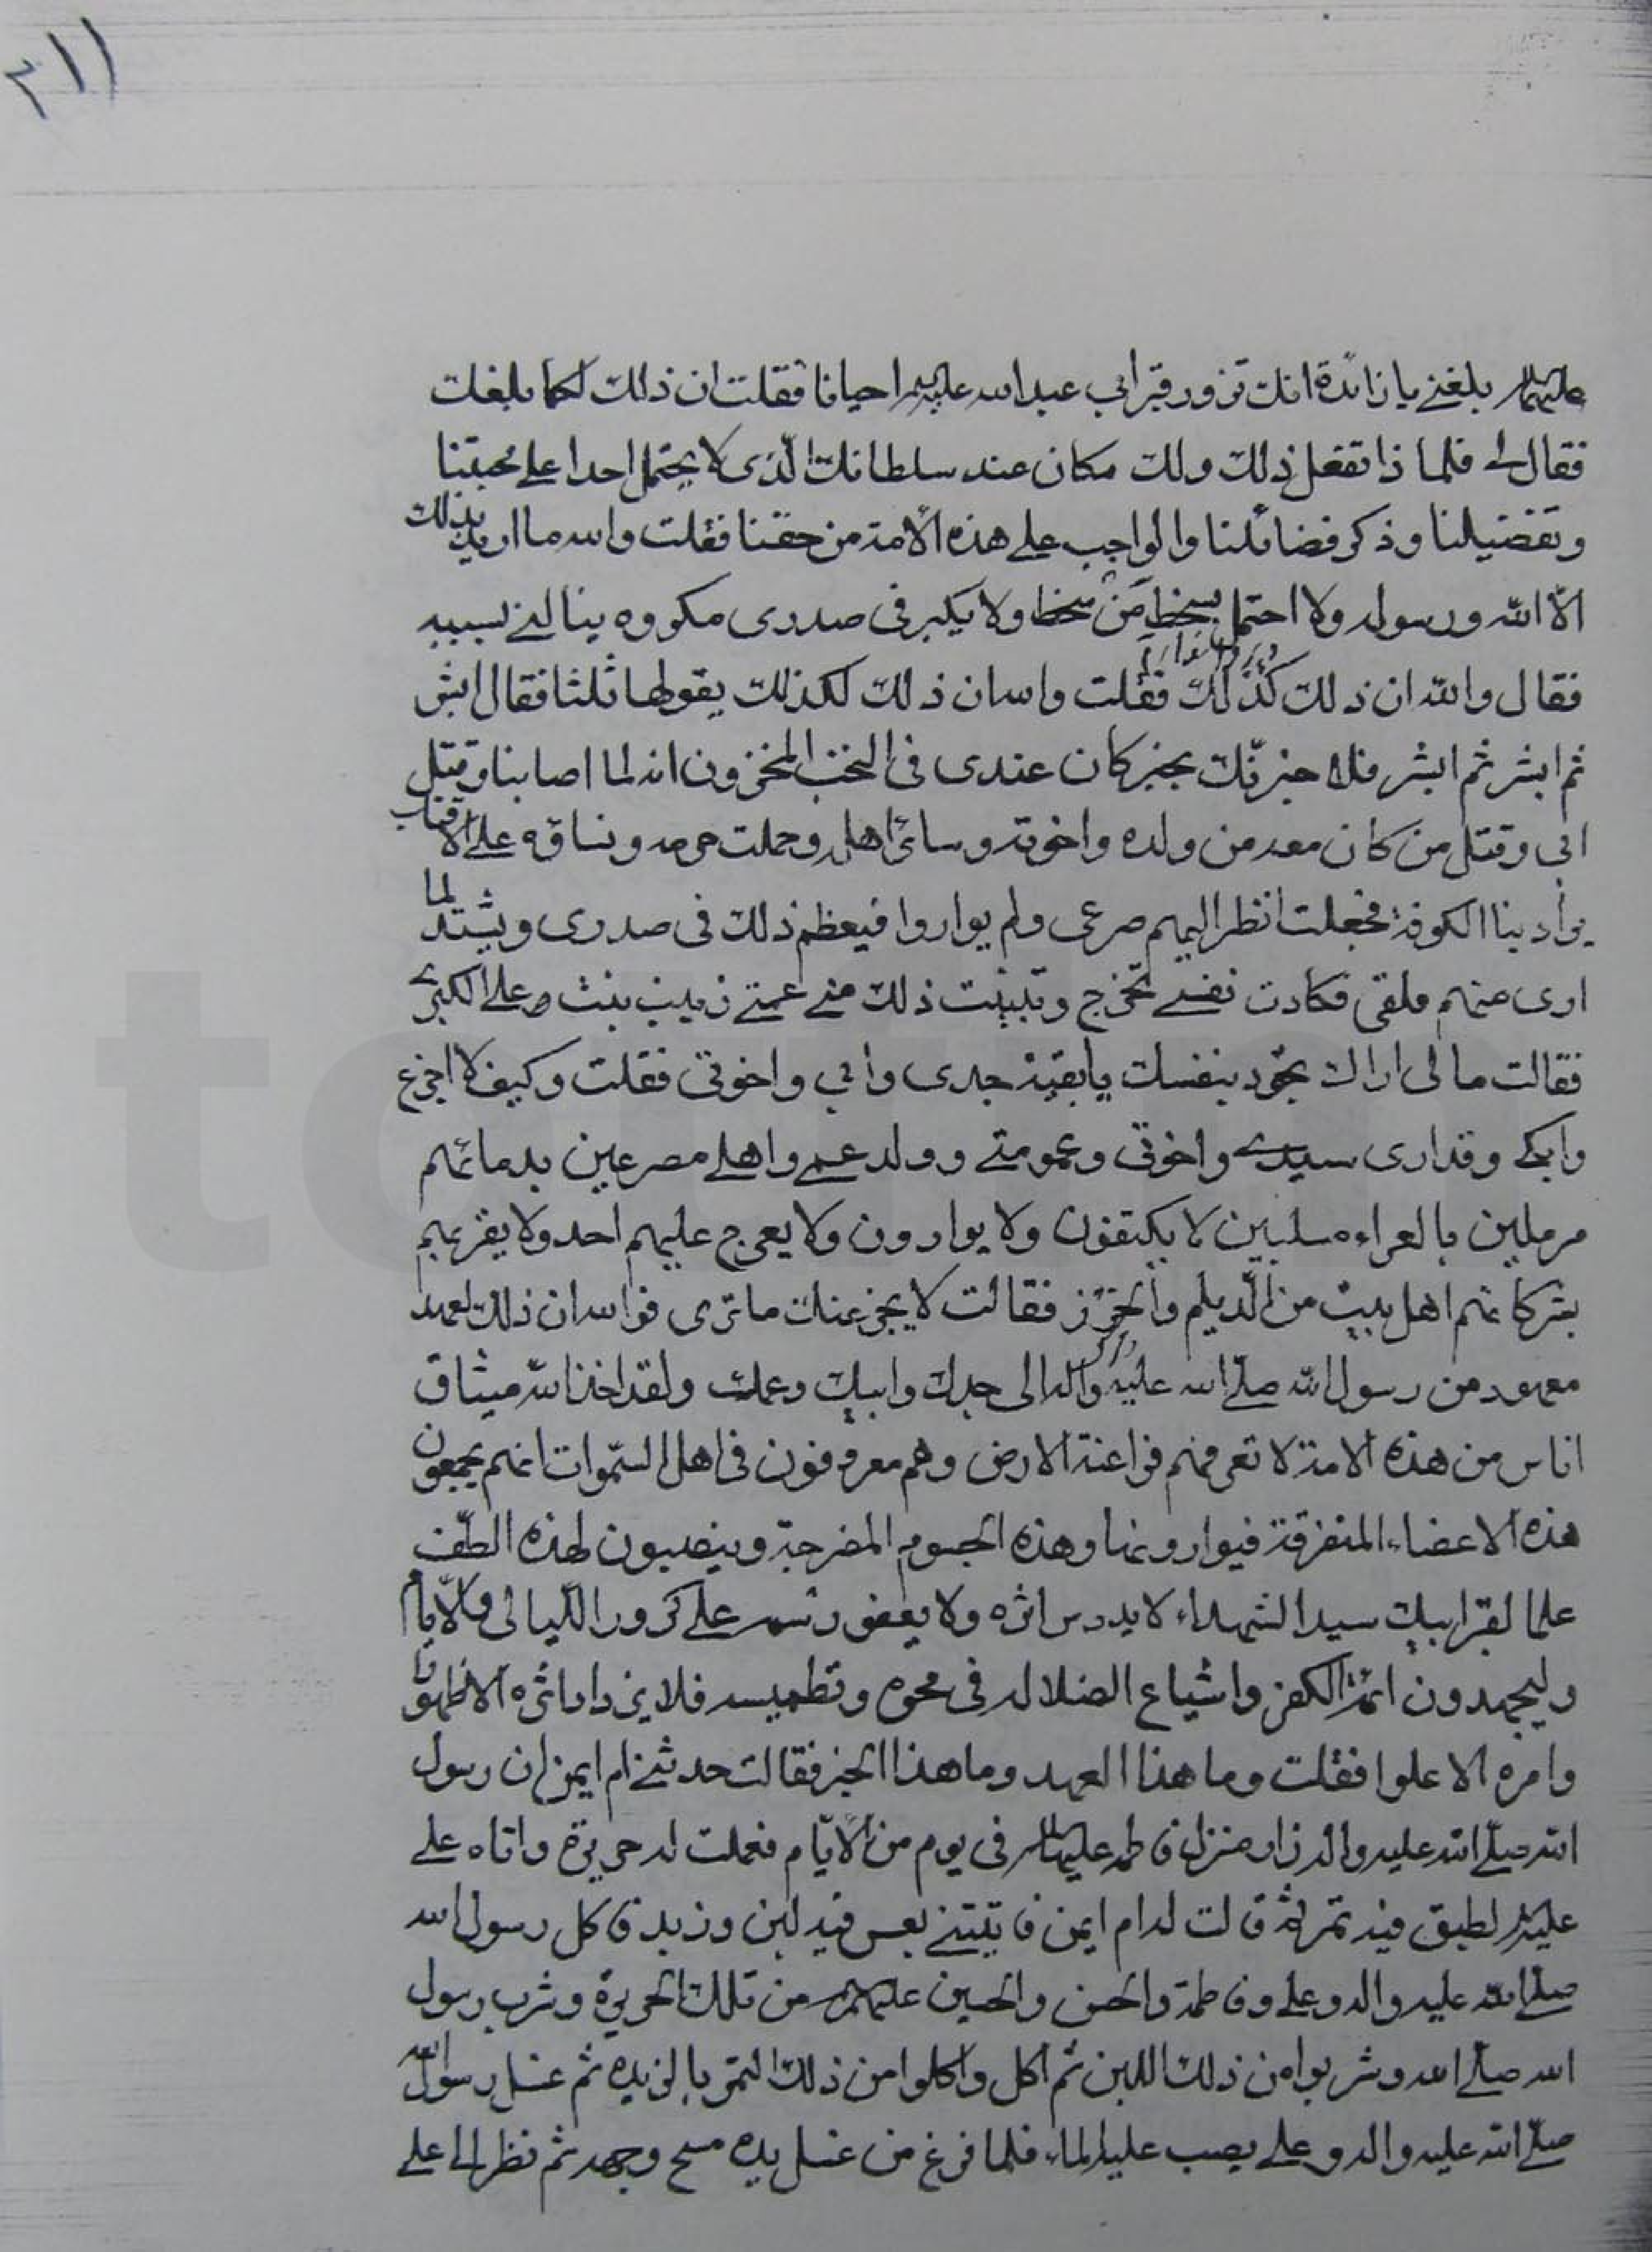 ٢١١
عليهما السلام بلغنے يا زائدة انك تزور قبر ابي عبد الله عليه السلام احيانا فقلت ان ذلك لكما بلغك
فقال لے فلما ذا تفعل ذلك ولك مكان عند سلطانك الّذى لا يحتمل احدا علے محبتنا
وتفضيلنا وذكر فضائلنا والواجب علے هذه الأمة من حقنا فقلت والله ما اريد بذلك
الّا الله ورسوله ولا احتمل بسخط من سخط ولا يكبر فى صدرى مكروه ينالنے بسببه
فقال والله ان ذلك كذلك فقلت والله ان ذلك لكذلك يقولها ثلثا فقال ابشر
ثم ابشر ثم ابشر فلاخبرنّك بخبر كان عندى فى النخب المخزون انه لما اصابنا وقتل
ابى وقتل من كان معه من ولده واخوته وسائر اهله وحملت حرمه ونساؤه علے الاقتاب
يراد بنا الكوفة فجعلت انظر اليهم صرعى ولم يواروا فيعظم ذلك فى صدرى ويشتد لما
ارى منهم قلقى فكادت نفسے تخرج وتبينت ذلك منے عمتے زينب بنت علے الكبرى
فقالت ما لى اراك تجود بنفسك يا بقية جدى وابي واخوتى فقلت وكيف لا اجزع
وابكے وقد ارى سيدے واخوتى وعمومتے وولد عمے واهلے مصرعين بدمائهم
مرملين بالعراء مسلبين لا يكفنون ولا يوارون ولا يعرج عليهم احد ولا يقربهم
بشر كانهم اهل بيت من الّديلم والخزر فقالت لا يجزعنك ما ترى فوالله ان ذلك لعهد
معهود من رسول الله صلّے الله عليه واله الى جدك وابيك وعمك ولقد اخذ الله ميثاق
اناس من هذه الامة لا تعرفهم فراعنة الارض وهم معروفون فى اهل السّموات انهم يجمعون
هذه الاعضاء المتفرقة فيوارونها وهذه الجسوم المضرجة وينصبون لهذه الطّف
علما لقبر ابيك سيد الشهداء لا يدرس اثره ولا يعفو رسمه علے كرور اللّيالى والأيام
وليجهدون ائمة الكفر واشياع الضلاله فى محوه وتطميسه فلا يزداد اثره الا ظهورا
وامره الا علوا فقلت وما هذا العهد وما هذا الخبر فقالت حدثتنے ام ايمن ان رسول
الله صلّے الله عليه واله زار منزل فاطمه عليها السلام فى يوم من الأيّام فعملت له حريرة واتاه علے
عليه السلام بطبق فيه تمر ثم قالت له ام ايمن فاتيتهم بعس فيه لبن وزبد فاكل رسول الله
صلے الله عليه واله وعلے وفاطمة والحسن والحسين عليهم السلام من تلك الحريرة وشرب رسول
الله صلے الله وشربوا من ذلك اللبن ثم اكل واكلوا من ذلك التمر بالزبد ثم غسل رسول الله
صلّے الله عليه واله وعلے يصب عليه الماء فلما فرغ من غسل يده مسح وجهه ثم نظر الے علے